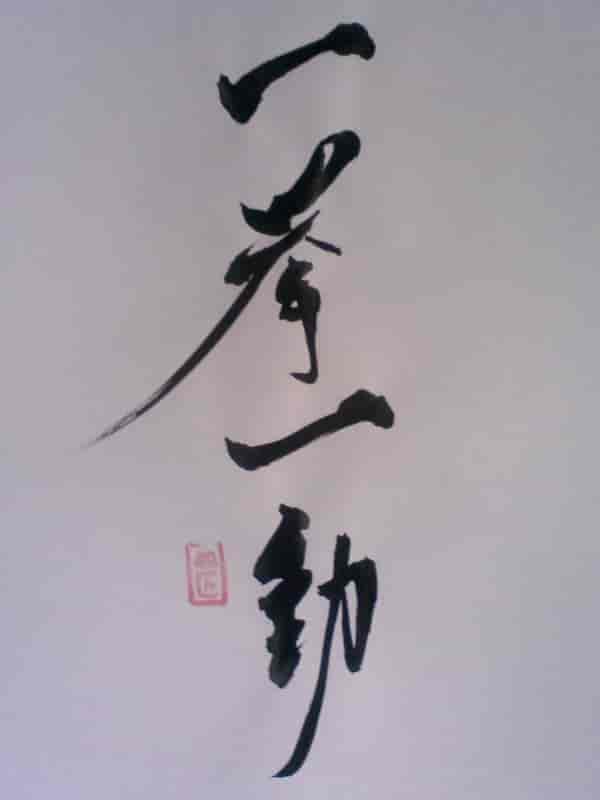 一挙一動